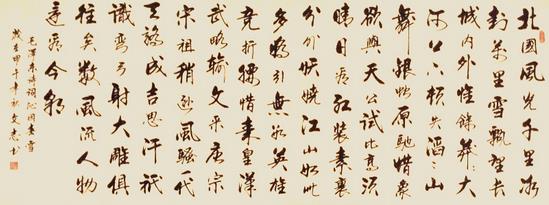 北國風光千里冰
封萬里雪飄望長
城内外惟餘莽〻大
河上下頓失滔〻山
舞銀蛇原馳蠟象
欲與天公試比高須
晴日看紅裝素裹
分外妖嬈江山如此
多嬌引無數英雄
競折腰惜秦皇漢
武略輸文采唐宗
宋祖稍遜風騷一代
天驕成吉思汗祇
識彎弓射大雕俱
往矣數風流人物
還看今朝
毛澤東詩詞沁園春雪
歲在甲午年秋文書